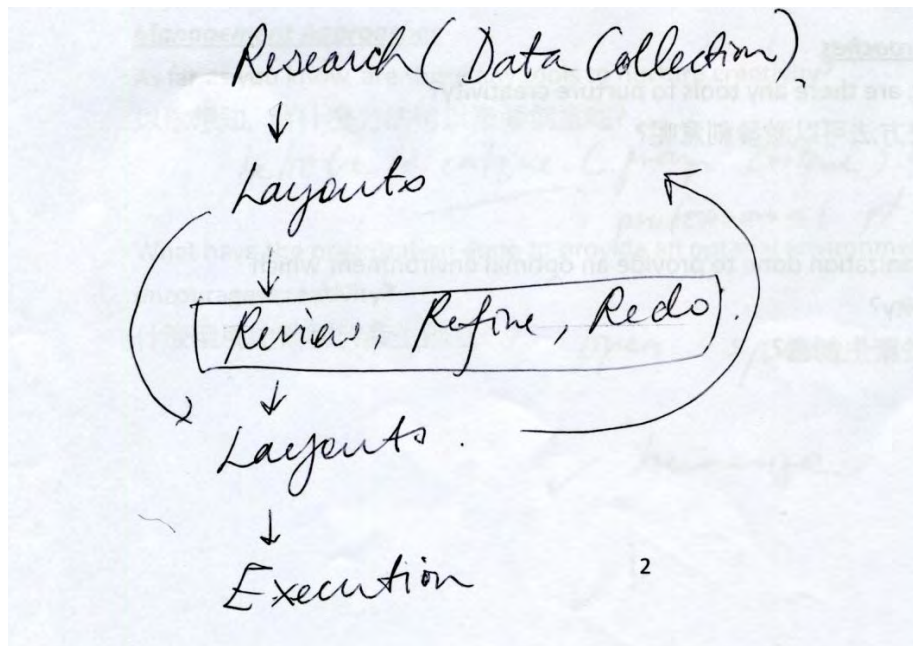 Research (Data Collection).
Layouts
Review, Refine, Redo.
Layouts.
Execution
2